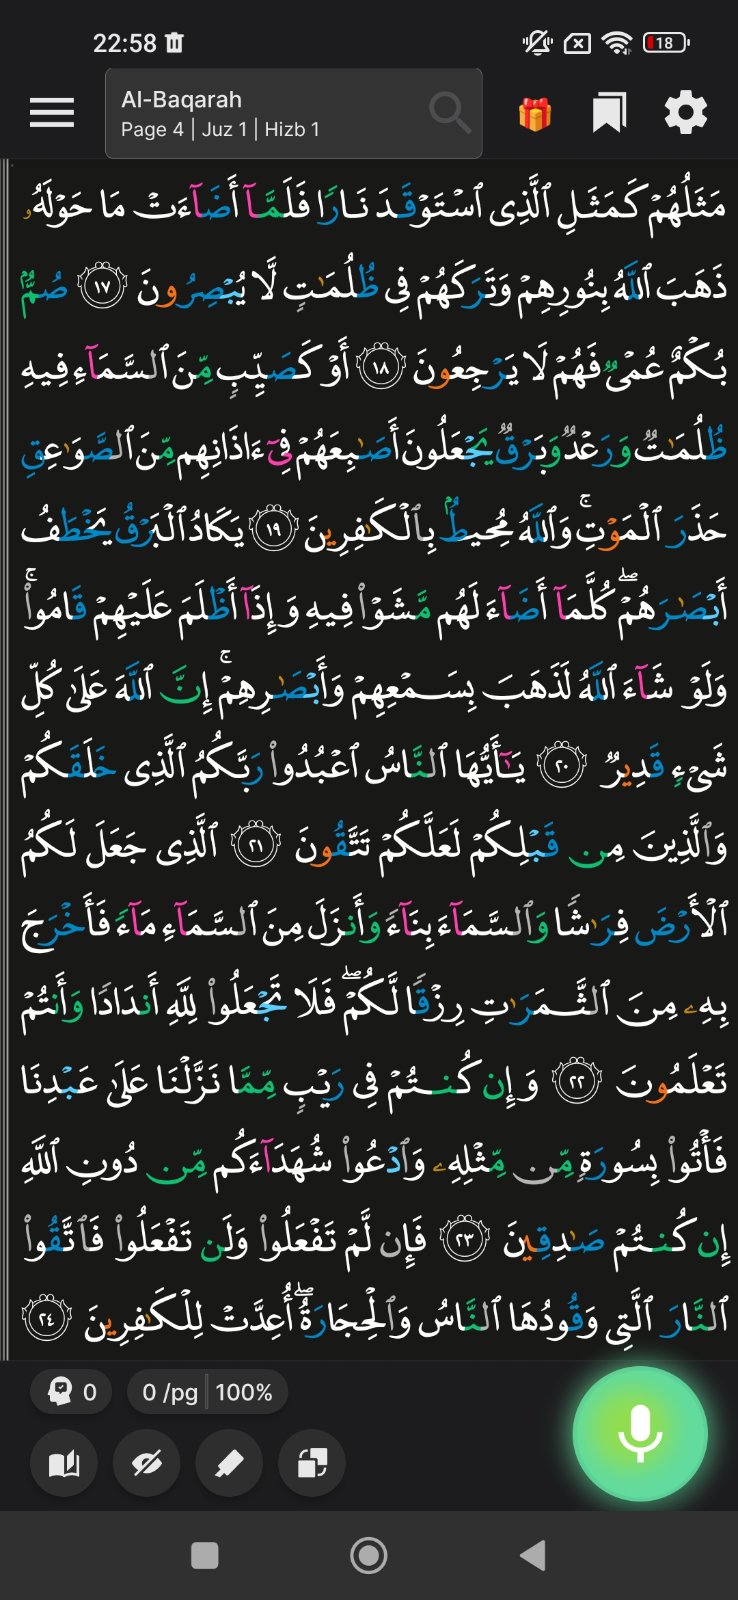 22:58
18
Al-Baqarah
Page 4 | Juz 1 | Hizb 1
مَثَلُهُمْ كَمَثَلِ ٱلَّذِى ٱسْتَوْقَدَ نَارًا فَلَمَّآ أَضَآءَتْ مَا حَوْلَهُۥ
ذَهَبَ ٱللَّهُ بِنُورِهِمْ وَتَرَكَهُمْ فِى ظُلُمَـٰتٍ لَّا يُبْصِرُونَ ١٧ صُمٌّۢ
بُكْمٌ عُمْىٌ فَهُمْ لَا يَرْجِعُونَ ١٨ أَوْ كَصَيِّبٍ مِّنَ ٱلسَّمَآءِ فِيهِ
ظُلُمَـٰتٌ وَرَعْدٌ وَبَرْقٌ يَجْعَلُونَ أَصَـٰبِعَهُمْ فِىٓ ءَاذَانِهِم مِّنَ ٱلصَّوَٰعِقِ
حَذَرَ ٱلْمَوْتِ ۚ وَٱللَّهُ مُحِيطٌۢ بِٱلْكَـٰفِرِينَ ١٩ يَكَادُ ٱلْبَرْقُ يَخْطَفُ
أَبْصَـٰرَهُمْ ۖ كُلَّمَآ أَضَآءَ لَهُم مَّشَوْا۟ فِيهِ وَإِذَآ أَظْلَمَ عَلَيْهِمْ قَامُوا۟ ۚ
وَلَوْ شَآءَ ٱللَّهُ لَذَهَبَ بِسَمْعِهِمْ وَأَبْصَـٰرِهِمْ ۚ إِنَّ ٱللَّهَ عَلَىٰ كُلِّ
شَىْءٍ قَدِيرٌ ٢٠ يَـٰٓأَيُّهَا ٱلنَّاسُ ٱعْبُدُوا۟ رَبَّكُمُ ٱلَّذِى خَلَقَكُمْ
وَٱلَّذِينَ مِن قَبْلِكُمْ لَعَلَّكُمْ تَتَّقُونَ ٢١ ٱلَّذِى جَعَلَ لَكُمُ
ٱلْأَرْضَ فِرَٰشًا وَٱلسَّمَآءَ بِنَآءً وَأَنزَلَ مِنَ ٱلسَّمَآءِ مَآءً فَأَخْرَجَ
بِهِۦ مِنَ ٱلثَّمَرَٰتِ رِزْقًا لَّكُمْ ۖ فَلَا تَجْعَلُوا۟ لِلَّهِ أَندَادًا وَأَنتُمْ
تَعْلَمُونَ ٢٢ وَإِن كُنتُمْ فِى رَيْبٍ مِّمَّا نَزَّلْنَا عَلَىٰ عَبْدِنَا
فَأْتُوا۟ بِسُورَةٍ مِّن مِّثْلِهِۦ وَٱدْعُوا۟ شُهَدَآءَكُم مِّن دُونِ ٱللَّهِ
إِن كُنتُمْ صَـٰدِقِينَ ٢٣ فَإِن لَّمْ تَفْعَلُوا۟ وَلَن تَفْعَلُوا۟ فَٱتَّقُوا۟
ٱلنَّارَ ٱلَّتِى وَقُودُهَا ٱلنَّاسُ وَٱلْحِجَارَةُ ۖ أُعِدَّتْ لِلْكَـٰفِرِينَ ٢٤
0
0 /pg | 100%